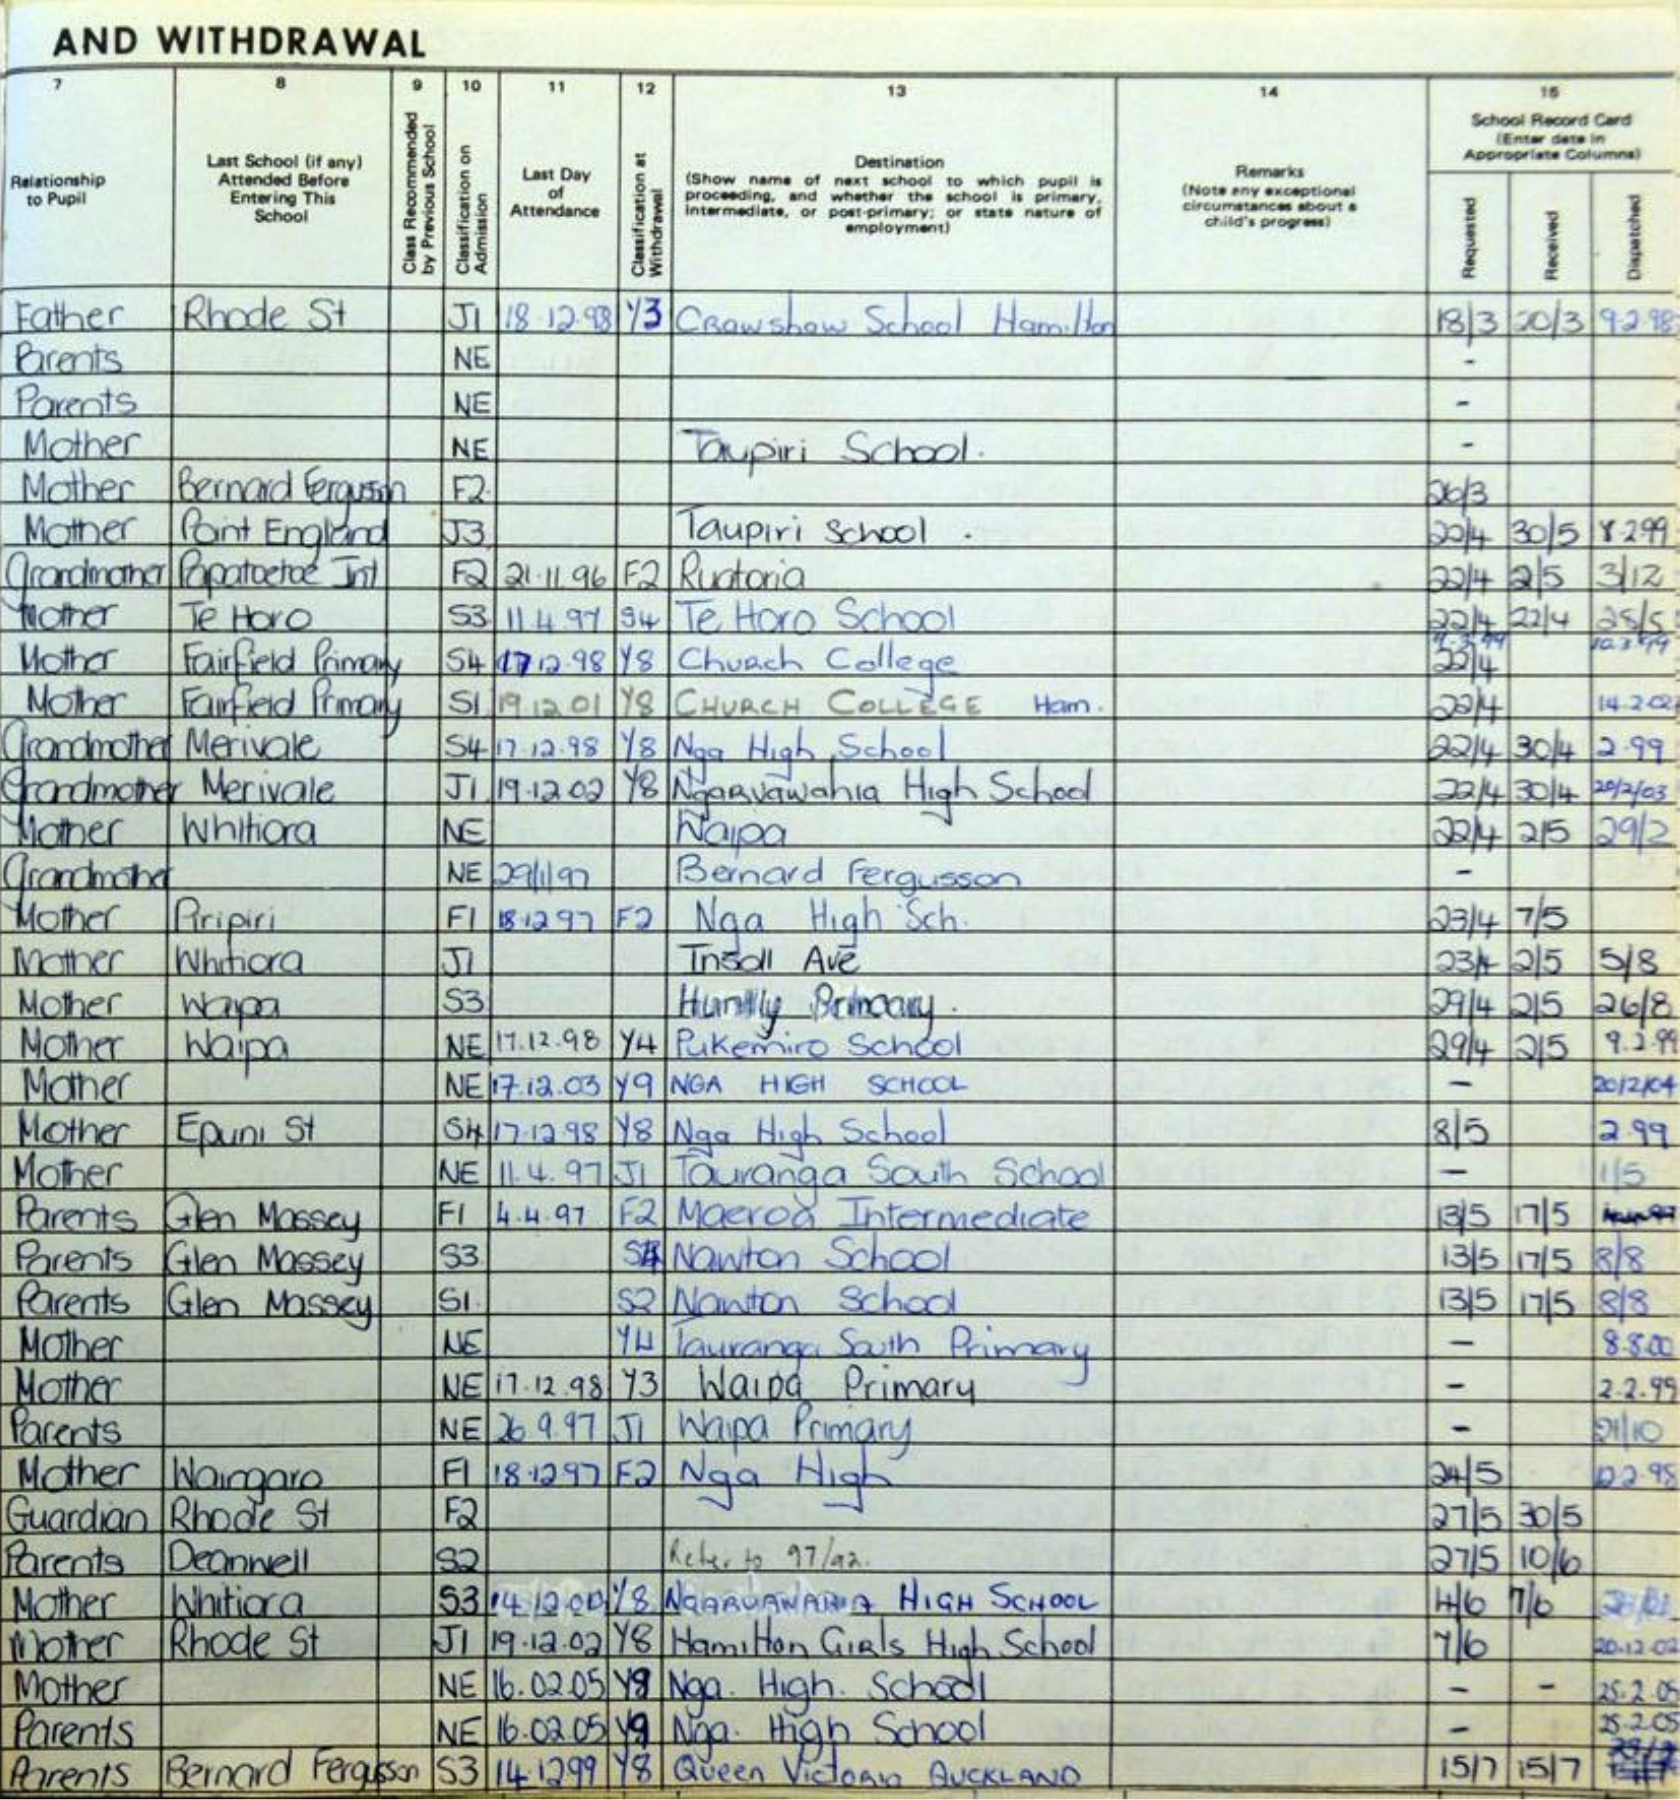 AND WITHDRAWAL
7 8 9 10 11 12 13 14 15
Relationship to Pupil
Last School (if any) Attended Before Entering This School
Class Recommended by Previous School
Classification on Admission
Last Day of Attendance
Classification at Withdrawal
Destination
(Show name of next school to which pupil is proceeding, and whether the school is primary, intermediate, or post-primary; or state nature of employment)
Remarks
(Note any exceptional circumstances about a child's progress)
School Record Card
(Enter date in Appropriate Columns)
Requested Received Dispatched
Father Rhode St J1 18.12.98 Y3 Crawshaw School Hamilton 18/3 20/3 9.2.98
Parents NE -
Parents NE -
Mother NE Taupiri School. -
Mother Bernard Ferguson F2. 26/3
Mother Point England J3 Taupiri School . 22/4 30/5 8.2.99
Grandmother Papatoetoe Int F2 21.11.96 F2 Ruatoria 22/4 2/5 3/12
Mother Te Horo S3 11.4.97 S4 Te Horo School 22/4 22/4 25/5
Mother Fairfield Primary S4 17.12.98 Y8 Church College 22/4
Mother Fairfield Primary S1 19.12.01 Y8 CHURCH COLLEGE Ham. 22/4 14.2.02
Grandmother Merivale S4 17.12.98 Y8 Nga High School 22/4 30/4 2.99
Grandmother Merivale J1 19.12.02 Y8 Ngaruawahia High School 22/4 30/4 20/2/03
Mother Whitiora NE Waipa 22/4 2/5 29/2
Grandmother NE 29/1/97 Bernard Fergusson -
Mother Piripiri F1 18.12.97 F2 Nga High Sch. 23/4 7/5
Mother Whitiora J1 Insoll Ave 23/4 2/5 5/8
Mother Waipa S3 Huntly Primary. 29/4 2/5 26/8
Mother Waipa NE 17.12.98 Y4 Pukemiro School 29/4 2/5 9.2.99
Mother NE 17.12.03 Y9 NGA HIGH SCHOOL - 20/2/04
Mother Epuni St S4 17.12.98 Y8 Nga High School 8/5 2.99
Mother NE 11.4.97 J1 Tauranga South School - 1/5
Parents Glen Massey F1 4.4.97 F2 Maeroa Intermediate 13/5 17/5
Parents Glen Massey S3 S4 Nawton School 13/5 17/5 8/8
Parents Glen Massey S1. S2 Nawton School 13/5 17/5 8/8
Mother NE Y4 Tauranga South Primary - 8.8.00
Mother NE 17.12.98 Y3 Waipa Primary - 2.2.99
Parents NE 26.9.97 J1 Waipa Primary - 21/10
Mother Waingaro F1 18.12.97 F2 Nga High 24/5 12.2.98
Guardian Rhode St F2 27/5 30/5
Parents Deanwell S2 Refer to 97/92. 27/5 10/6
Mother Whitiora S3 14.12.00 Y8 NGARUAWAHIA HIGH SCHOOL 4/6 7/6
Mother Rhode St J1 19.12.02 Y8 Hamilton Girls High School 7/6 20.12.02
Mother NE 16.02.05 Y9 Nga. High. School - - 25.2.05
Parents NE 16.02.05 Y9 Nga. High School - 25.2.05
Parents Bernard Fergusson S3 14.12.99 Y8 Queen Victoria AUCKLAND 15/7 15/7